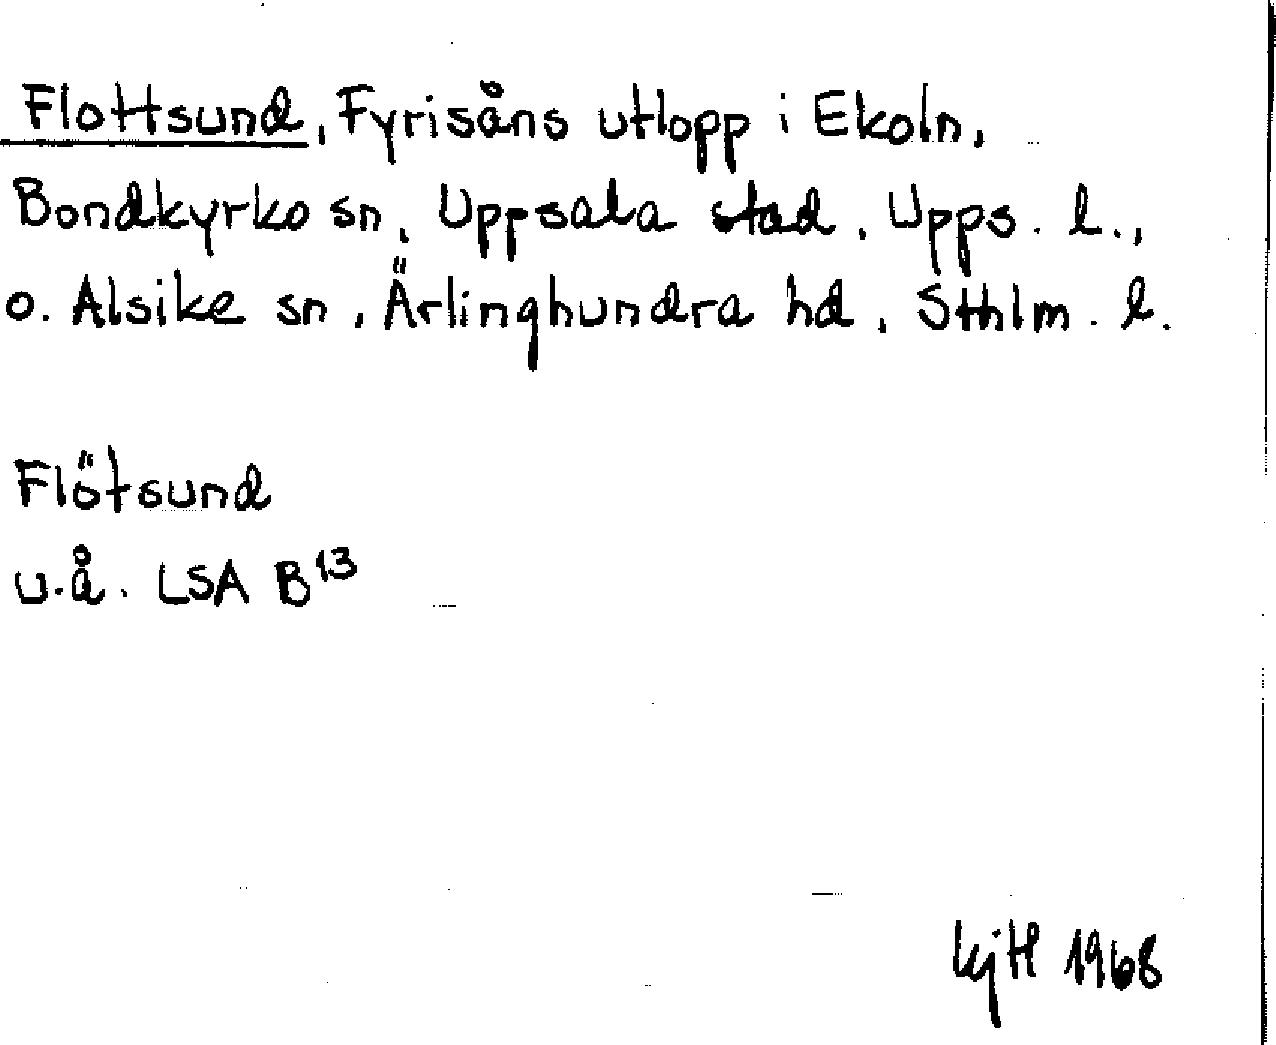 Flottsund, Fyrisåns utlopp i Ekoln,
Bondkyrko sn, Uppsala stad, Upps. l.,
o. Alsike sn, Ärlinghundra hd, Sthlm. l.
Flötsund
u.å. LSA B¹³
1968